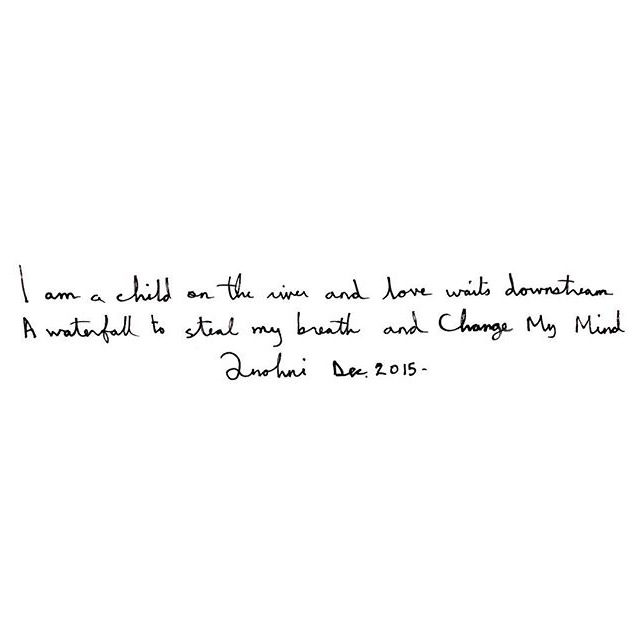 I am a child on the river and love waits downstream
A waterfall to steal my breath and Change My Mind
Anohni Dec. 2015-